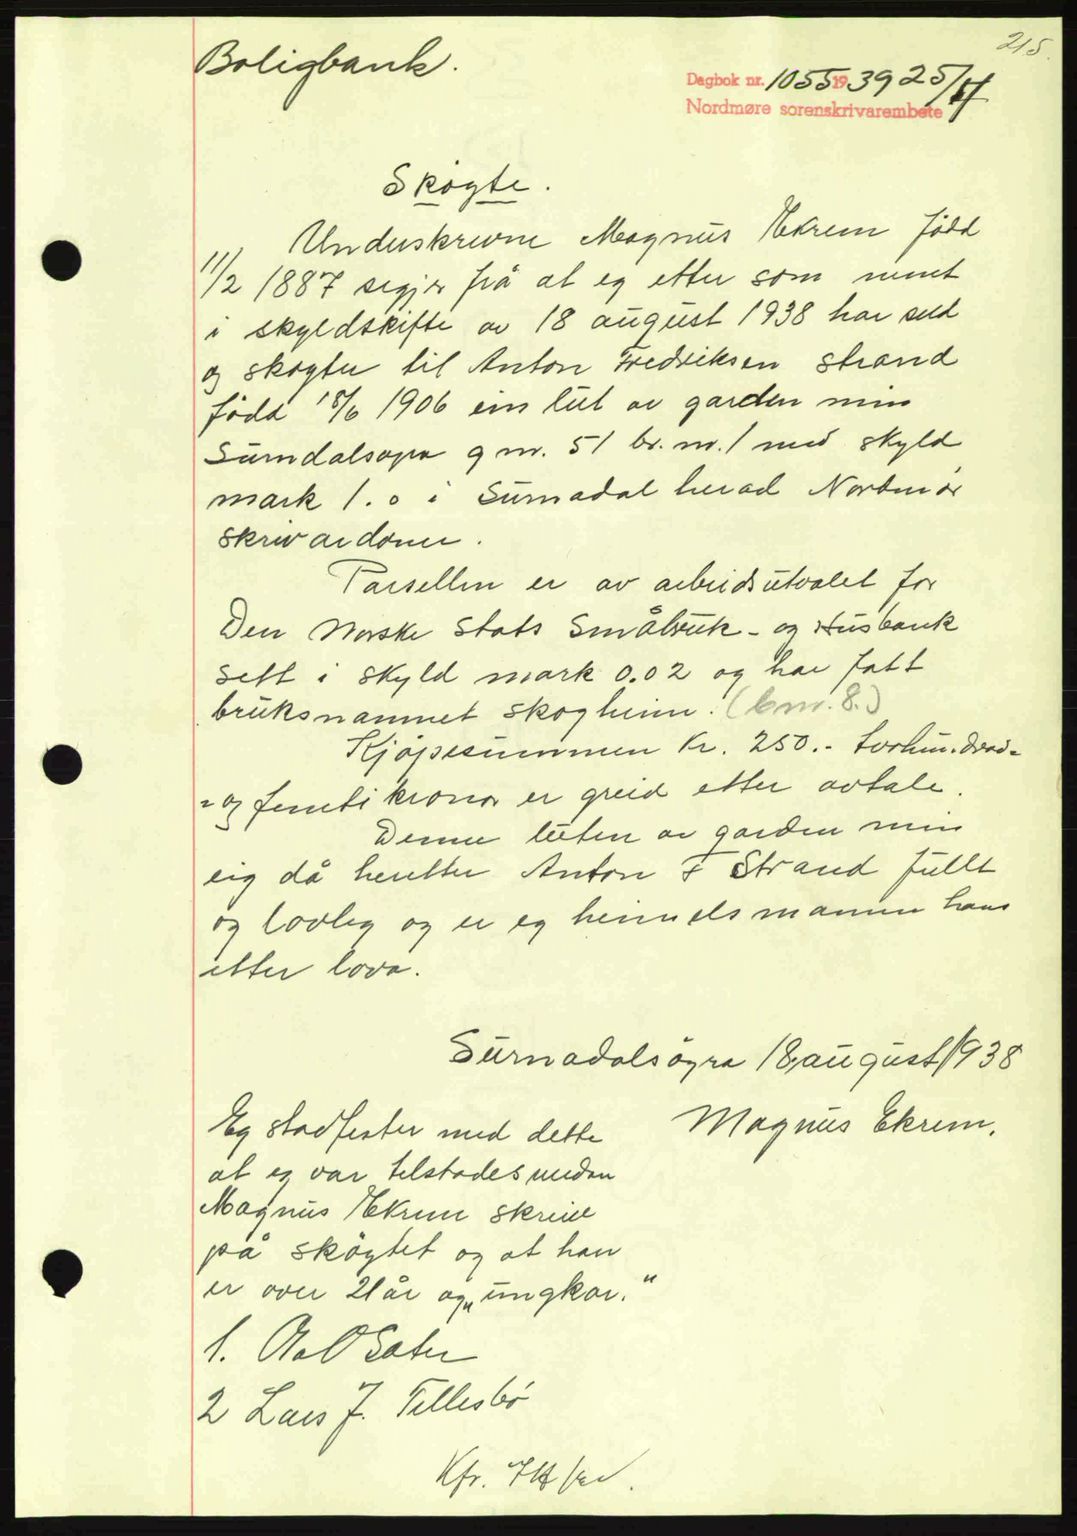 215.
Boligbank.
Dagbok nr. 1055 1939 25/4
Nordmøre sorenskrivarembete
Skøgte.
Underskrevne Magnus Ekrem født
11/2 1887 segjer frå at eg etter som nemt
i skyldskifte av 18 august 1938 har seld
og skøgter til Anton Fredriksen Strand
født 18/6 1906 ein lut av garden min
Surndalsøyra g nr. 51 br. nr. 1 med skyld
mark 1. i Surnadal herad Nordmør
skrivardøme.
Parsellen er av arbeidsutvalet for
Den Norske Stats Småbruk- og Husbank
sett i skyld mark 0.02 og har fått
bruksnamnet Skogheim. (bnr. 8.)
Kjøpesummen Kr. 250.- tvohundrad-
- og femti kronor er greid etter avtale.
Denne luten av garden min
eig då heretter Anton F Strand fullt
og lovleg og er eg heimelsmannen hans
etter lova.
Surnadalsøyra 18 august 1938
Magnus Ekrem.
Eg stadfester med dette
at eg var tilstades medan
Magnus Ekrem skreiv
på skøytet og at han
er over 21 år og "ungkar."
1. Ola O Sæter
2 Lars J. Tellesbø
Kfr.